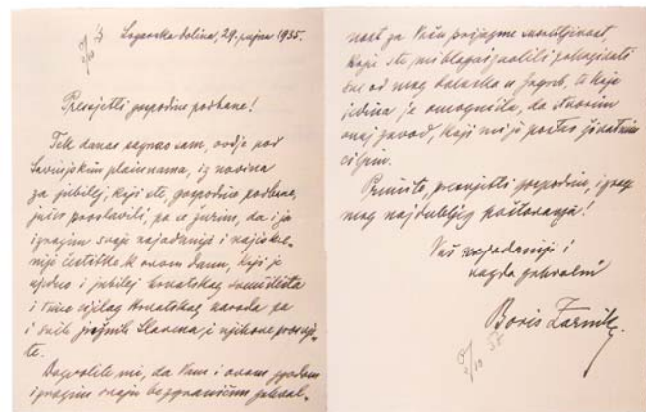 Logarska dolina, 29. rujna 1935.
Presvjetli gospodine podbane!
Tek danas saznao sam, ovdje pod
Savinjskim planinama, iz novina
za jubilej, koji ste, gospodine podbane,
jučer proslavili, pa se žurim, da i ja
izrazim svoje najodanije i najiskre-
nije čestitke k ovom danu, koji je
ujedno i jubilej hrvatskog sveučilišta
i time cijelog hrvatskog naroda pa
i svih južnih Slavena i njihove prosvje-
te.
Dozvolite mi, da Vam i ovom zgodom
izrazim svoju bezgraničnu zahval-
nost za Vašu susretljivost,
koju ste mi blagoizvolili pokazivati
sve od mog dolaska u Zagreb, te koja
jedina je omogućila, da stvorim
onaj zavod, koji mi je postao životnim
ciljem.
Primite, presvjetli gospodine, izraz
mog najdubljeg poštovanja!
Vaš najodaniji i
vazda zahvalni
Boris Zarnik.